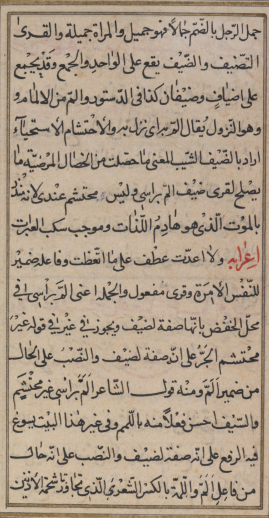 جمل الرجل بالضم جمالا فهو جميل والمراة جميلة والقرى
الضيف والضيف يقع على الواحد والجمع وقد يجمع
على اضياف وضيفان كذا فى الدستور والم من الالمام و
وهو النزول يقال الم براى نزل به والاحتشام الاستحياء
اراد بالضيف الشيب المعنى ما حصلت من الخصال المرضية ما
يصلح لقرى ضيف الم براسى وليس محتشم عندى لانه
بالموت الذى هو هادم اللذات وموجب سكب العبرات
اعرابه ولا اعدت عطف على ما اتعظت وفاعله ضمير
للنفس الامرة وقرى مفعول والجملة اعنى الم براسى فى
محل الخفض بانها صفة لضيف ويجوز فى غير فى قوله غير
محتشم الجر على انه صفة لضيف والنصب على الحال
من ضمير الم ومنه قول الشاعر الم براسى غير محتشم
والسيف احسن فعلا منه باللمم وفى غير هذا البيت يسوغ
فيه الرفع على انه صفة لضيف والنصب على انه حال
من فاعل الم واللمة بالكسر الشعر الذى تجاوز شحمة الاذنين